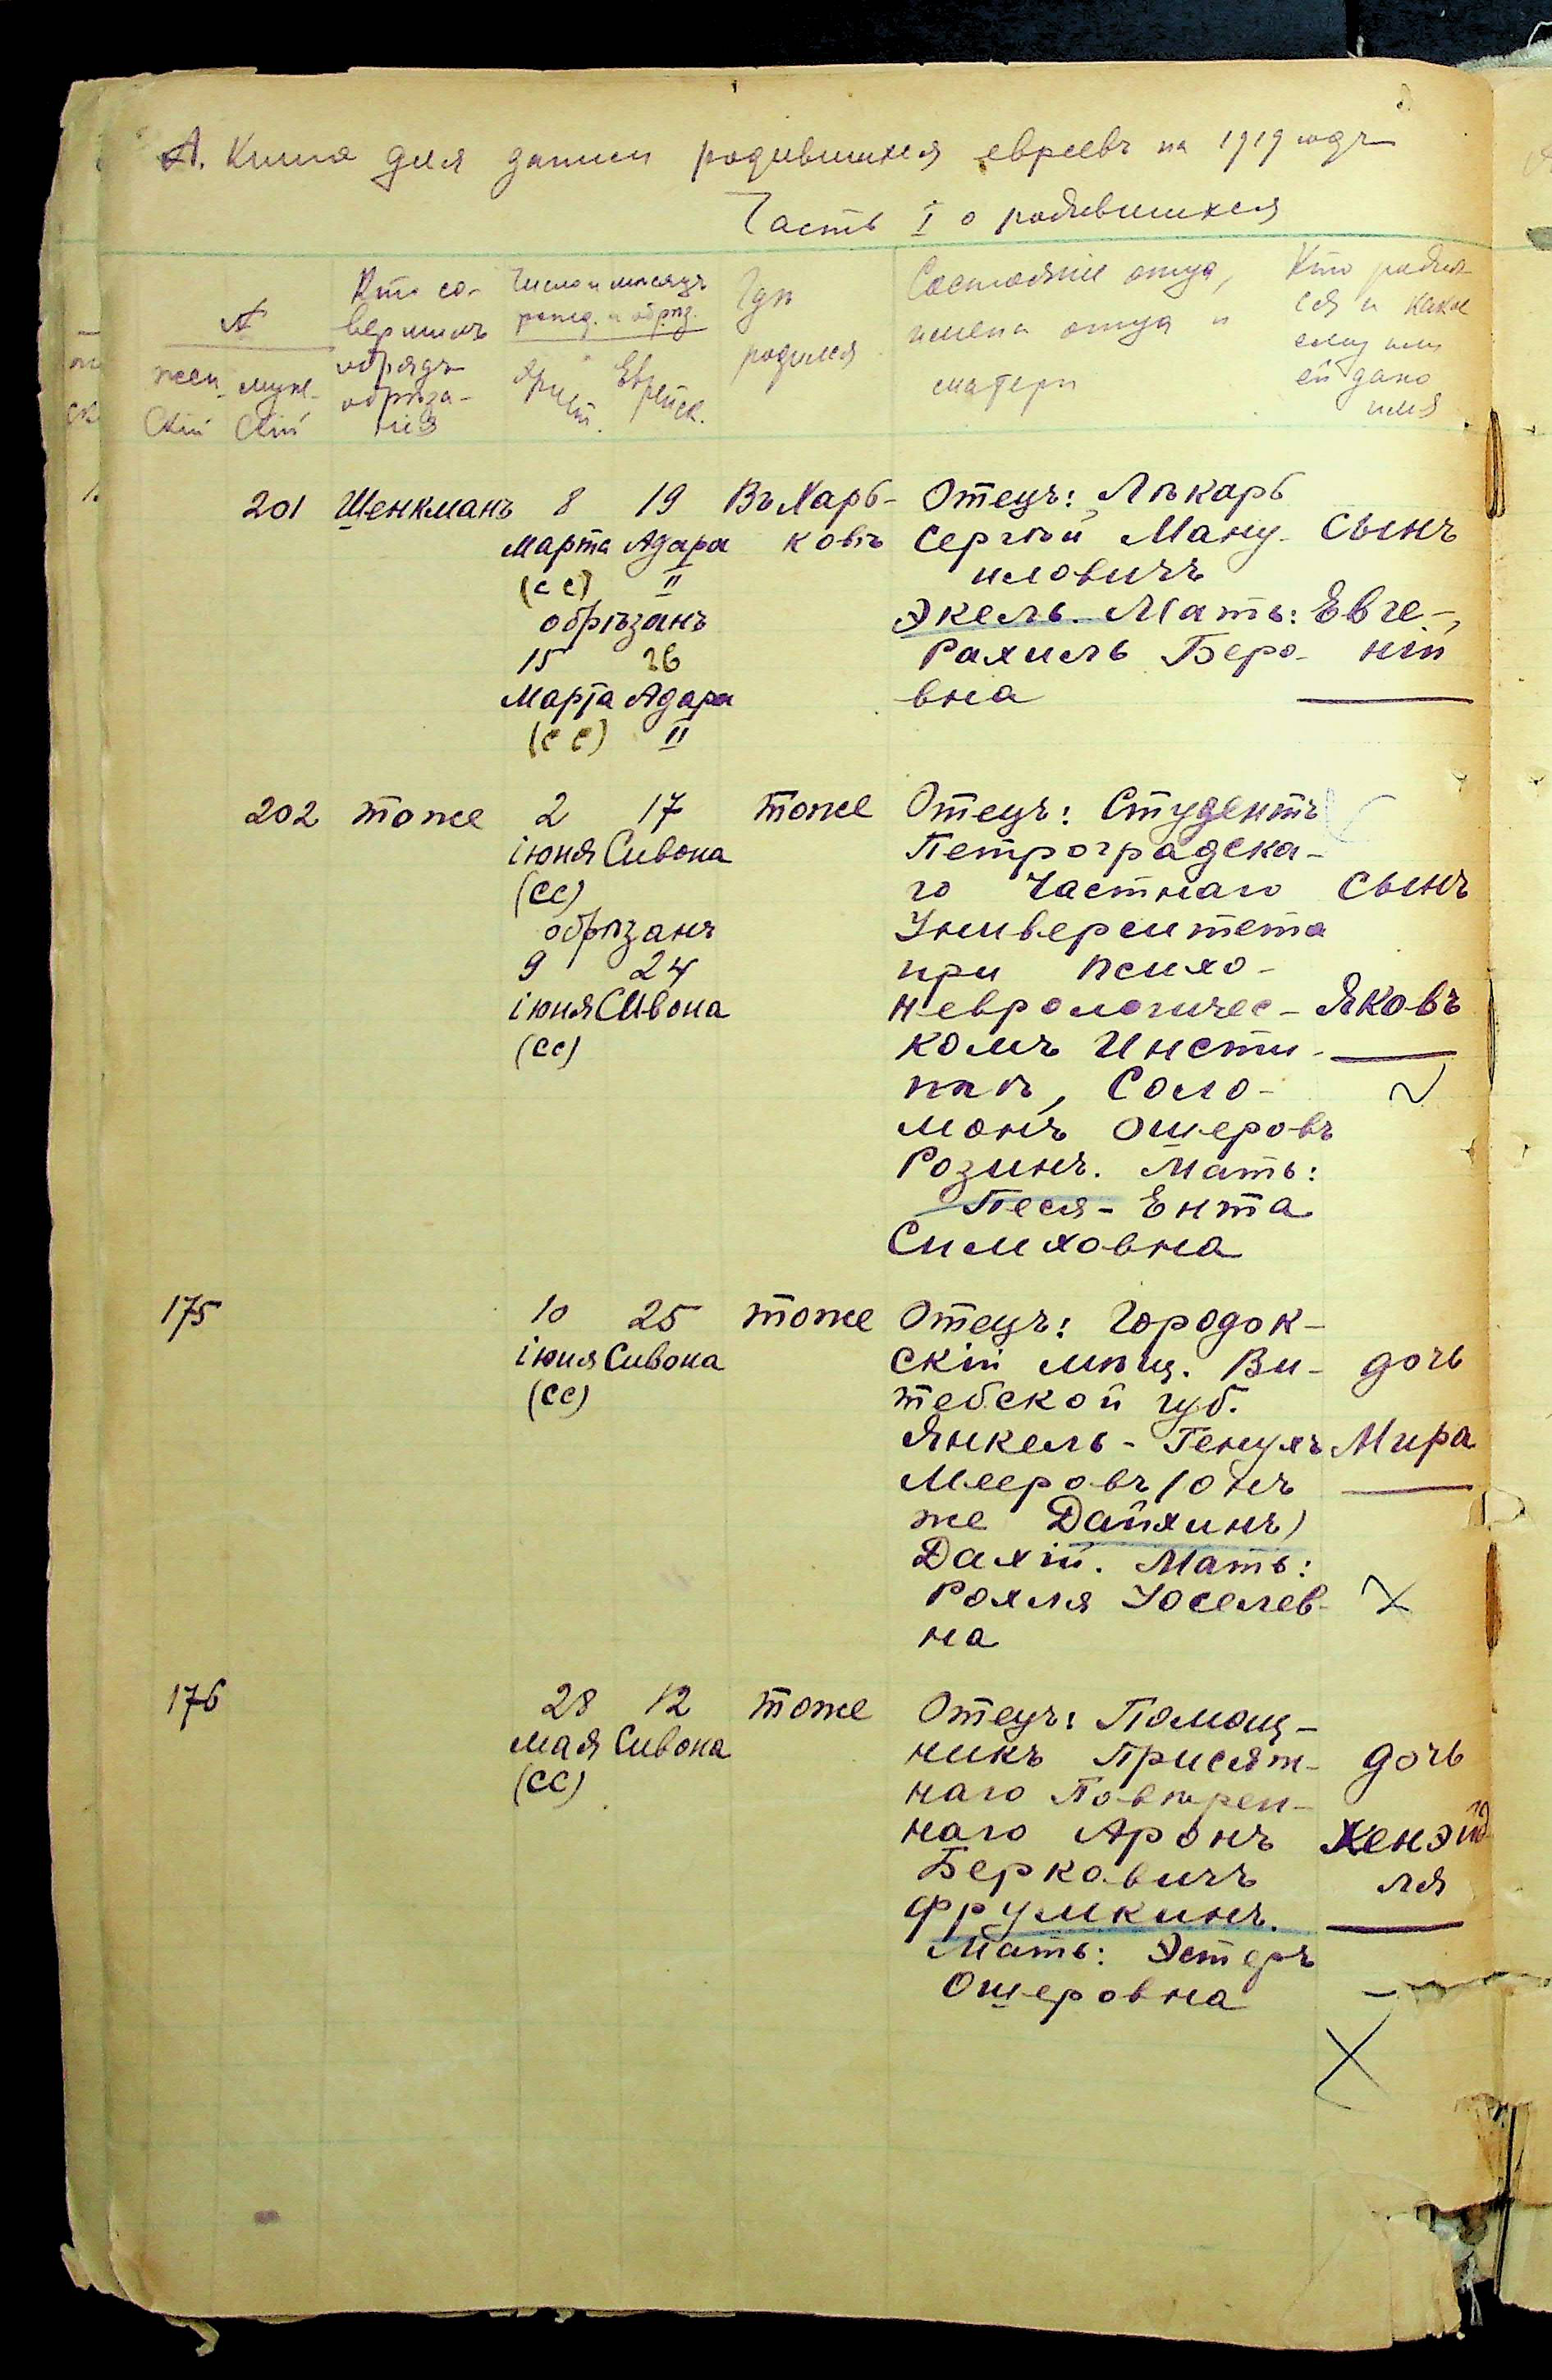 А. Книга для записи родившихся евреевъ на 1919 годъ
Часть I о родившихся
№
жен-
скій
муж-
скій
Кто со-
вершилъ
обрядъ
обрѣза-
нія
Число и мѣсяцъ
рожд. и обрѣз.
Христ.
Еврейск.
Гдѣ
родился
Состояніе отца,
имена отца и
матери
Кто родил-
ся и какое
ему или
ей дано
имя
201 Шенкманъ 8 19 Въ Харь-
ковѣ
Марта Адара
(сс) II
обрѣзанъ
15 26
Марта Адара
(сс) II
Отецъ: Лѣкарь
Сергѣй Ману-
иловичъ
Экель. Мать:
Рахиль Беро-
вна
Сынъ
Евге-
ній
202 тоже 2 17 тоже
іюня Сивона
(сс)
обрѣзанъ
9 24
іюня Сивона
(сс)
Отецъ: Студентъ
Петроградска-
го Частнаго
Университета
при Психо-
неврологичес-
комъ Инсти-
, Соло-
монъ Ошеровъ
Розинъ. Мать:
Песя-Ента
Симховна
Сынъ
Яковъ
175 10 25 тоже
іюня Сивона
(сс)
Отецъ: Городок-
скій мѣщ. Ви-
тебской губ.
Янкель-Генухъ
Мееровъ (онъ
же Дайхинъ)
Дахій. Мать:
Рохля Іоселев-
на
дочь
Мира
176 28 12 тоже
мая Сивона
(сс)
Отецъ: Помощ-
никъ Присяж-
наго Повѣрен-
наго Аронъ
Берковичъ
Фрумкинъ.
Мать: Эстеръ
Ошеровна
дочь
Хенэй-
ля